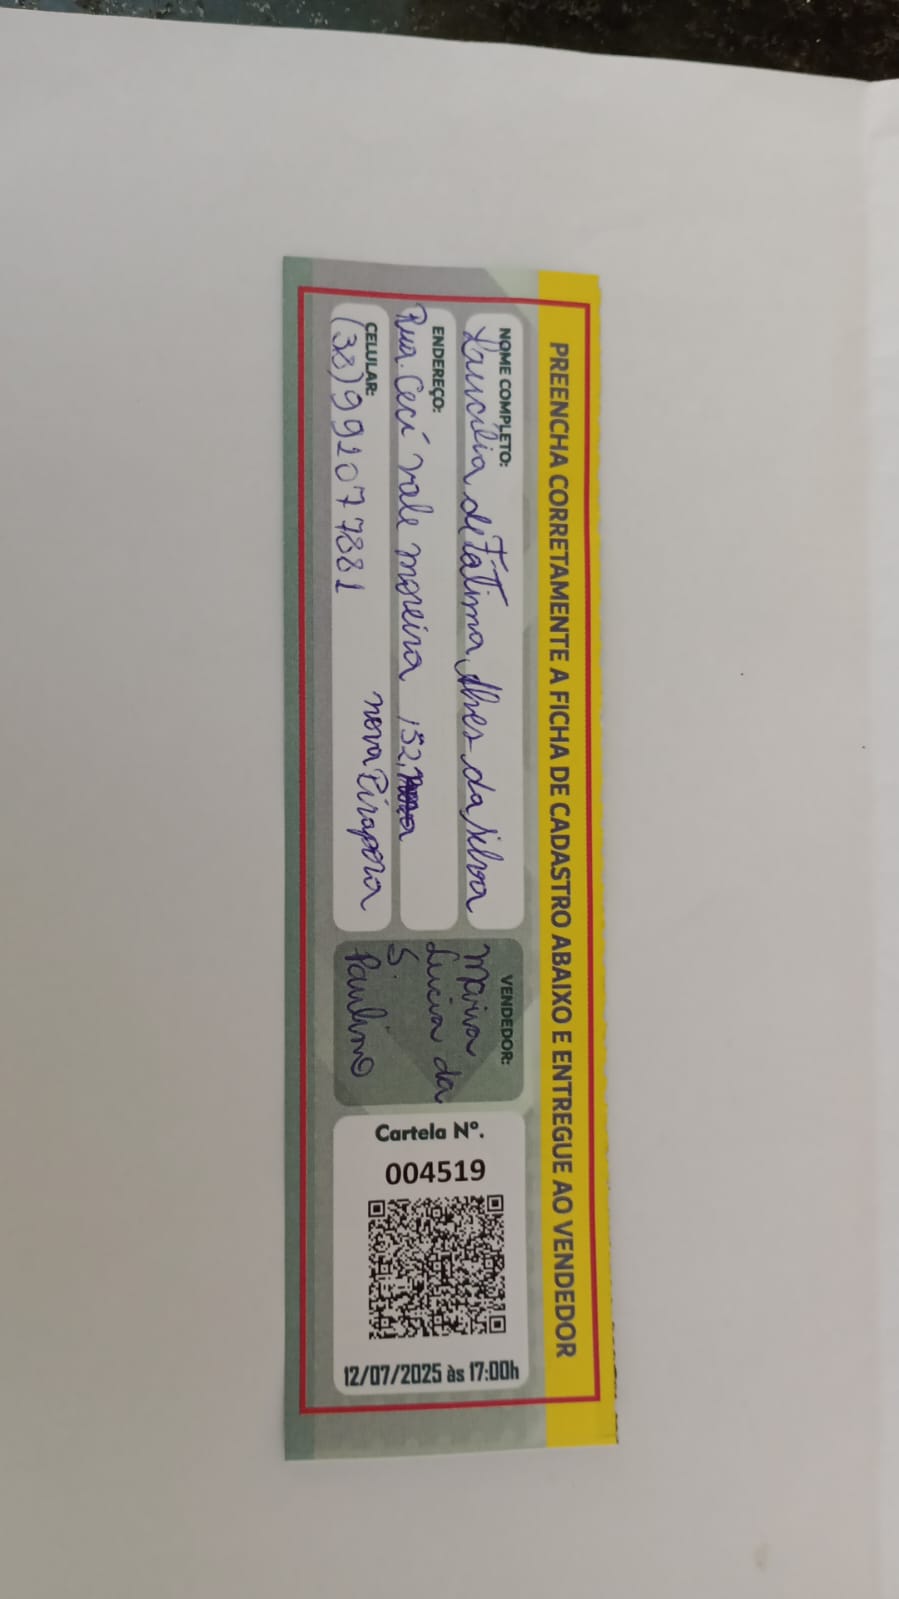 PREENCHA CORRETAMENTE A FICHA DE CADASTRO ABAIXO E ENTREGUE AO VENDEDOR
NOME COMPLETO:
Laucilia de Fatima Alves da Silva
ENDEREÇO:
Rua. Ceci vale moreira 152,
CELULAR:
(38) 991077881
nova Pirapora
VENDEDOR:
Maria
Lucia da
S.
Paulino
Cartela Nº.
004519
12/07/2025 às 17:00h